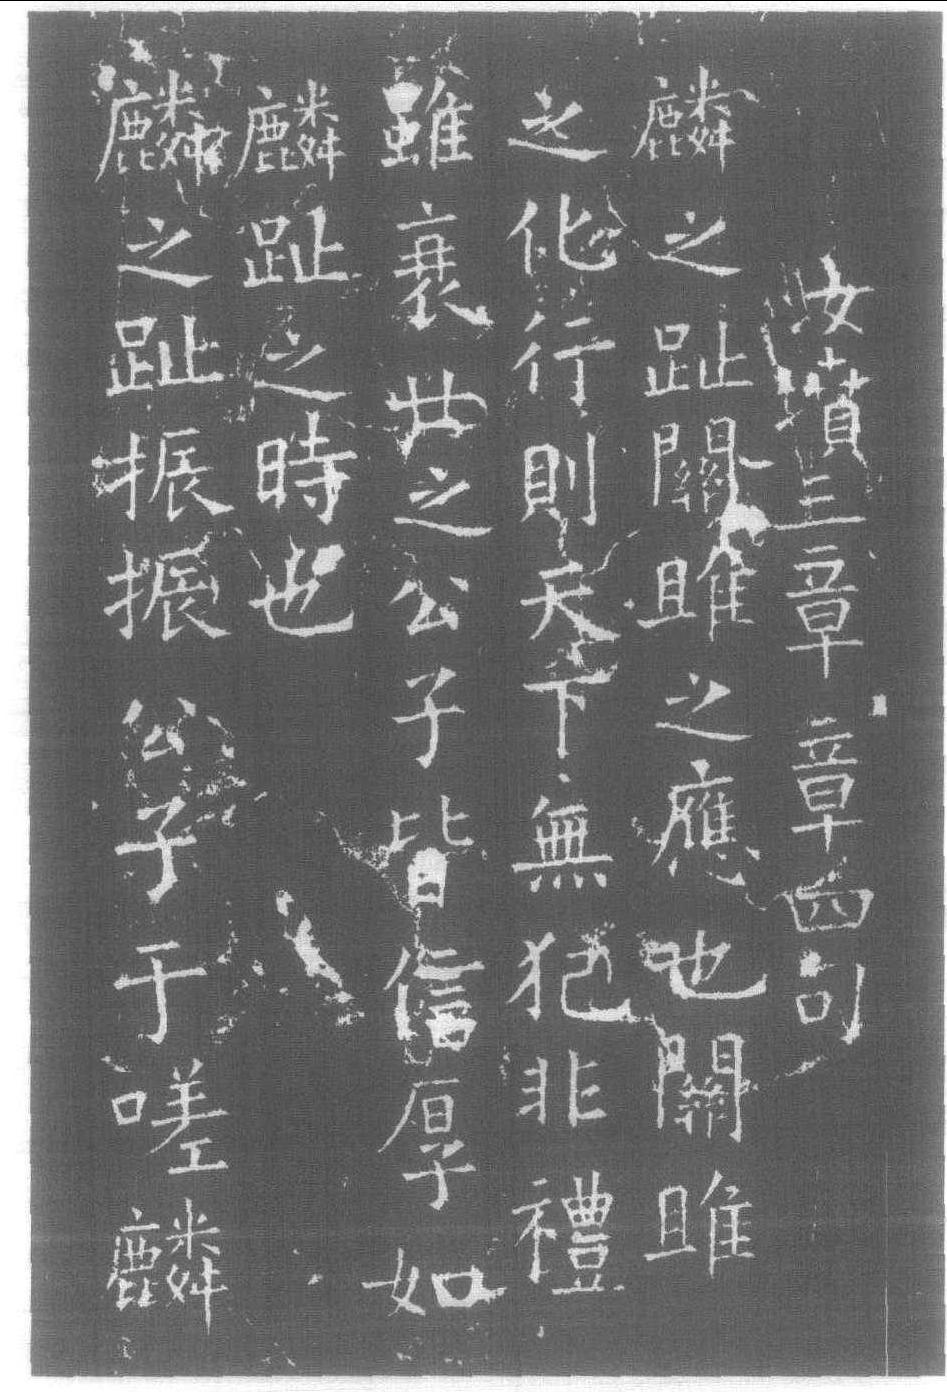 汝墳三章章四句
麟之趾關雎之應也關雎
之化行則天下無犯非禮
雖衰世之公子皆信厚如
麟趾之時也
麟之趾振振公子于嗟麟